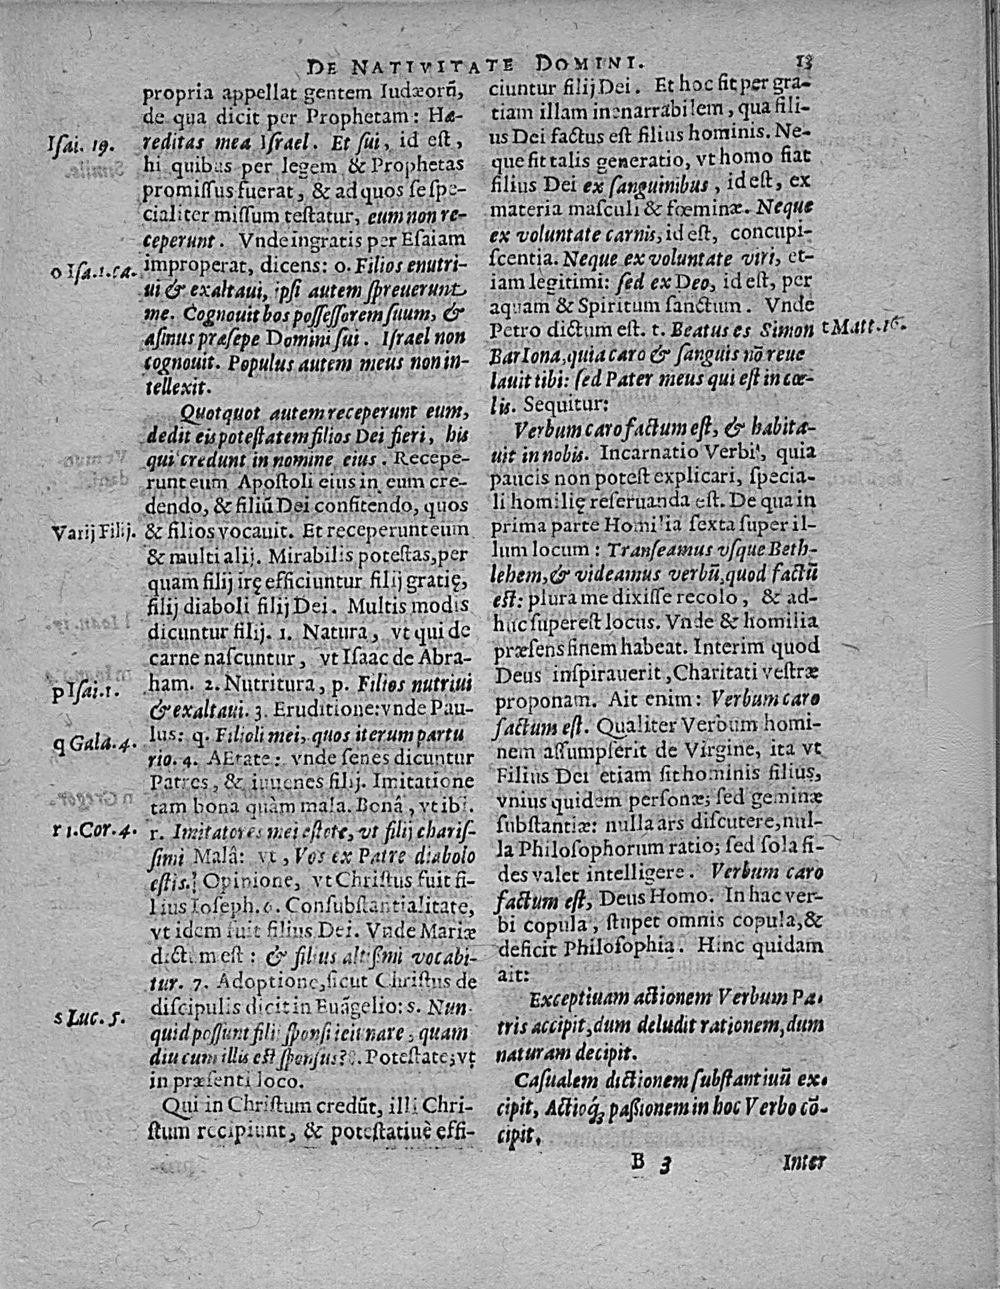 DE NATIVITATE DOMINI. 13
propria appellat gentem Iudæorũ,
de qua dicit per Prophetam: Hæ-
Isai. 19. reditas mea Israel. Et sui, id est,
hi quibus per legem & Prophetas
promissus fuerat, & ad quos se spe-
cialiter missum testatur, eum non re-
ceperunt. Vnde ingratis per Esaiam
o Isa.1.ca. improperat, dicens: o. Filios enutri-
ui & exaltaui, ipsi autem spreuerunt
me. Cognouit bos possessorem suum, &
asinus præsepe Domini sui. Israel non
cognouit. Populus autem meus non in-
tellexit.
Quotquot autem receperunt eum,
dedit eis potestatem filios Dei fieri, his
qui credunt in nomine eius. Recepe-
runt eum Apostoli eius in eum cre-
dendo, & filiũ Dei confitendo, quos
Varij Filij. & filios vocauit. Et receperunt eum
& multi alij. Mirabilis potestas, per
quam filij irę efficiuntur filij gratię,
filij diaboli filij Dei. Multis modis
dicuntur filij. 1. Natura, vt qui de
carne nascuntur, vt Isaac de Abra-
p Isai.1. ham. 2. Nutritura, p. Filios nutriui
& exaltaui. 3. Eruditione: vnde Pau-
q Gala.4. lus: q. Filioli mei, quos iterum partu
rio. 4. AEtate: vnde senes dicuntur
Patres, & iuuenes filij. Imitatione
tam bona quàm mala. Bonâ, vt ibi.
r 1.Cor.4. r. Imitatores mei estote, vt filij charis-
simi Malâ: vt, Vos ex Patre diabolo
estis. Opinione, vt Christus fuit fi-
lius Ioseph. 6. Consubstantialitate,
vt idem fuit filius Dei. Vnde Mariæ
dictum est: & filius altissimi vocabi-
tur. 7. Adoptione, sicut Christus de
s Luc. 5. discipulis dicit in Euãgelio: s. Nun-
quid possunt filij sponsi ieiunare, quam
diu cum illis est sponsus? 8. Potestate, vt
in præsenti loco.
Qui in Christum credũt, illi Chri-
stum recipiunt, & potestatiuè effi-
ciuntur filij Dei. Et hoc fit per gra-
tiam illam inenarrabilem, qua fili-
us Dei factus est filius hominis. Ne-
que fit talis generatio, vt homo fiat
filius Dei ex sanguinibus, id est, ex
materia masculi & fœminæ. Neque
ex voluntate carnis, id est, concupi-
scentia. Neque ex voluntate viri, et-
iam legitimi: sed ex Deo, id est, per
aquam & Spiritum sanctum. Vnde
Petro dictum est. t. Beatus es Simon t Matt.16.
Bar Iona, quia caro & sanguis nõ reue
lauit tibi: sed Pater meus qui est in cœ-
lis. Sequitur:
Verbum caro factum est, & habita-
uit in nobis. Incarnatio Verbi, quia
paucis non potest explicari, specia-
li homilię reseruanda est. De qua in
prima parte Homilia sexta super il-
lum locum: Transeamus vsque Beth-
lehem, & videamus verbũ, quod factũ
est: plura me dixisse recolo, & ad-
huc superest locus. Vnde & homilia
præsens finem habeat. Interim quod
Deus inspirauerit, Charitati vestræ
proponam. Ait enim: Verbum caro
factum est. Qualiter Verbum homi-
nem assumpserit de Virgine, ita vt
Filius Dei etiam sit hominis filius,
vnius quidem personæ; sed geminæ
substantiæ: nulla ars discutere, nul-
la Philosophorum ratio; sed sola fi-
des valet intelligere. Verbum caro
factum est, Deus Homo. In hac ver-
bi copula, stupet omnis copula, &
deficit Philosophia. Hinc quidam
ait:
Exceptiuam actionem Verbum Pa-
tris accipit, dum deludit rationem, dum
naturam decipit.
Casualem dictionem substantiuũ ex-
cipit, Actioq́; passionem in hoc Verbo cõ-
cipit.
B 3 Inter